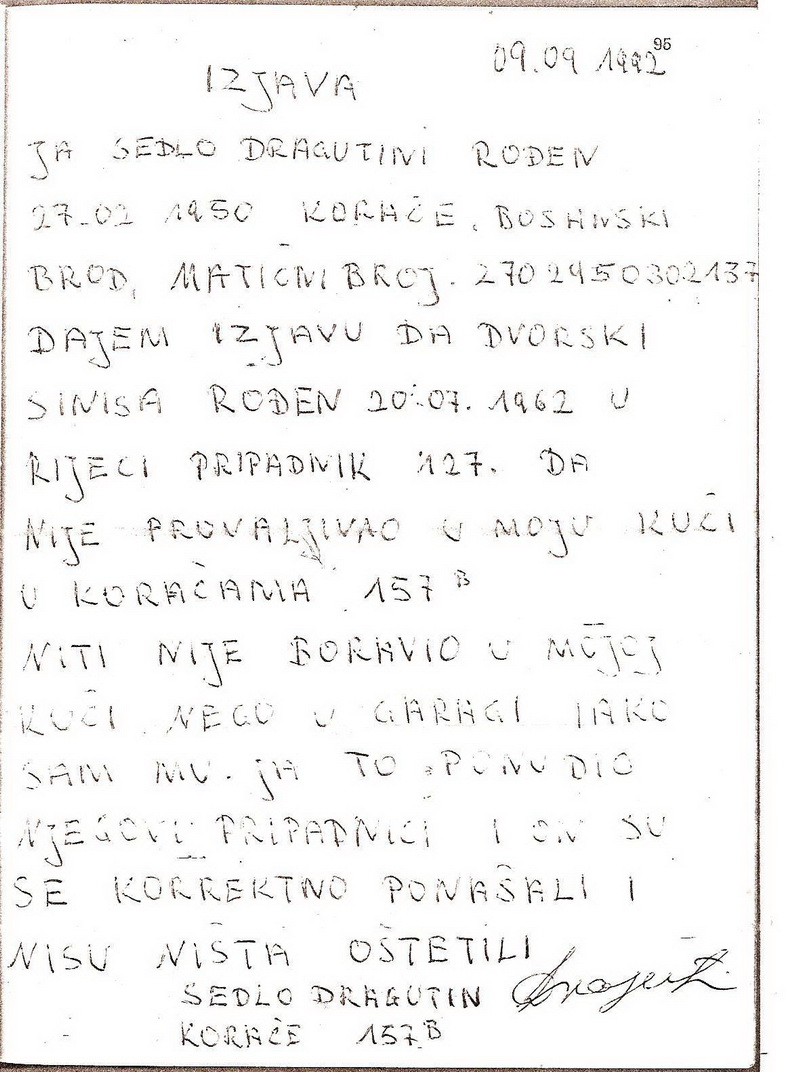 95
09.09 1992
IZJAVA
JA SEDLO DRAGUTINI ROĐEN
27-02 1950 KORAČE, BOSANSKI
BROD, MATIČNI BROJ. 2702950302137
DAJEM IZJAVU DA DVORSKI
SINISA ROĐEN 20.07. 1962 U
RIJECI PRIPADNIK 127. DA
NIJE PROVALJIVAO U MOJU KUČI
U KORAČAMA 157 B
NITI NIJE BORAVIO U MOJOJ
KUČI NEGO U GARAGI IAKO
SAM MU JA TO PONUDIO
NJEGOVI PRIPADNICI I ON SU
SE KORREKTNO PONAŠALI I
NISU NIŠTA OŠTETILI
SEDLO DRAGUTIN
KORAČE 157 B